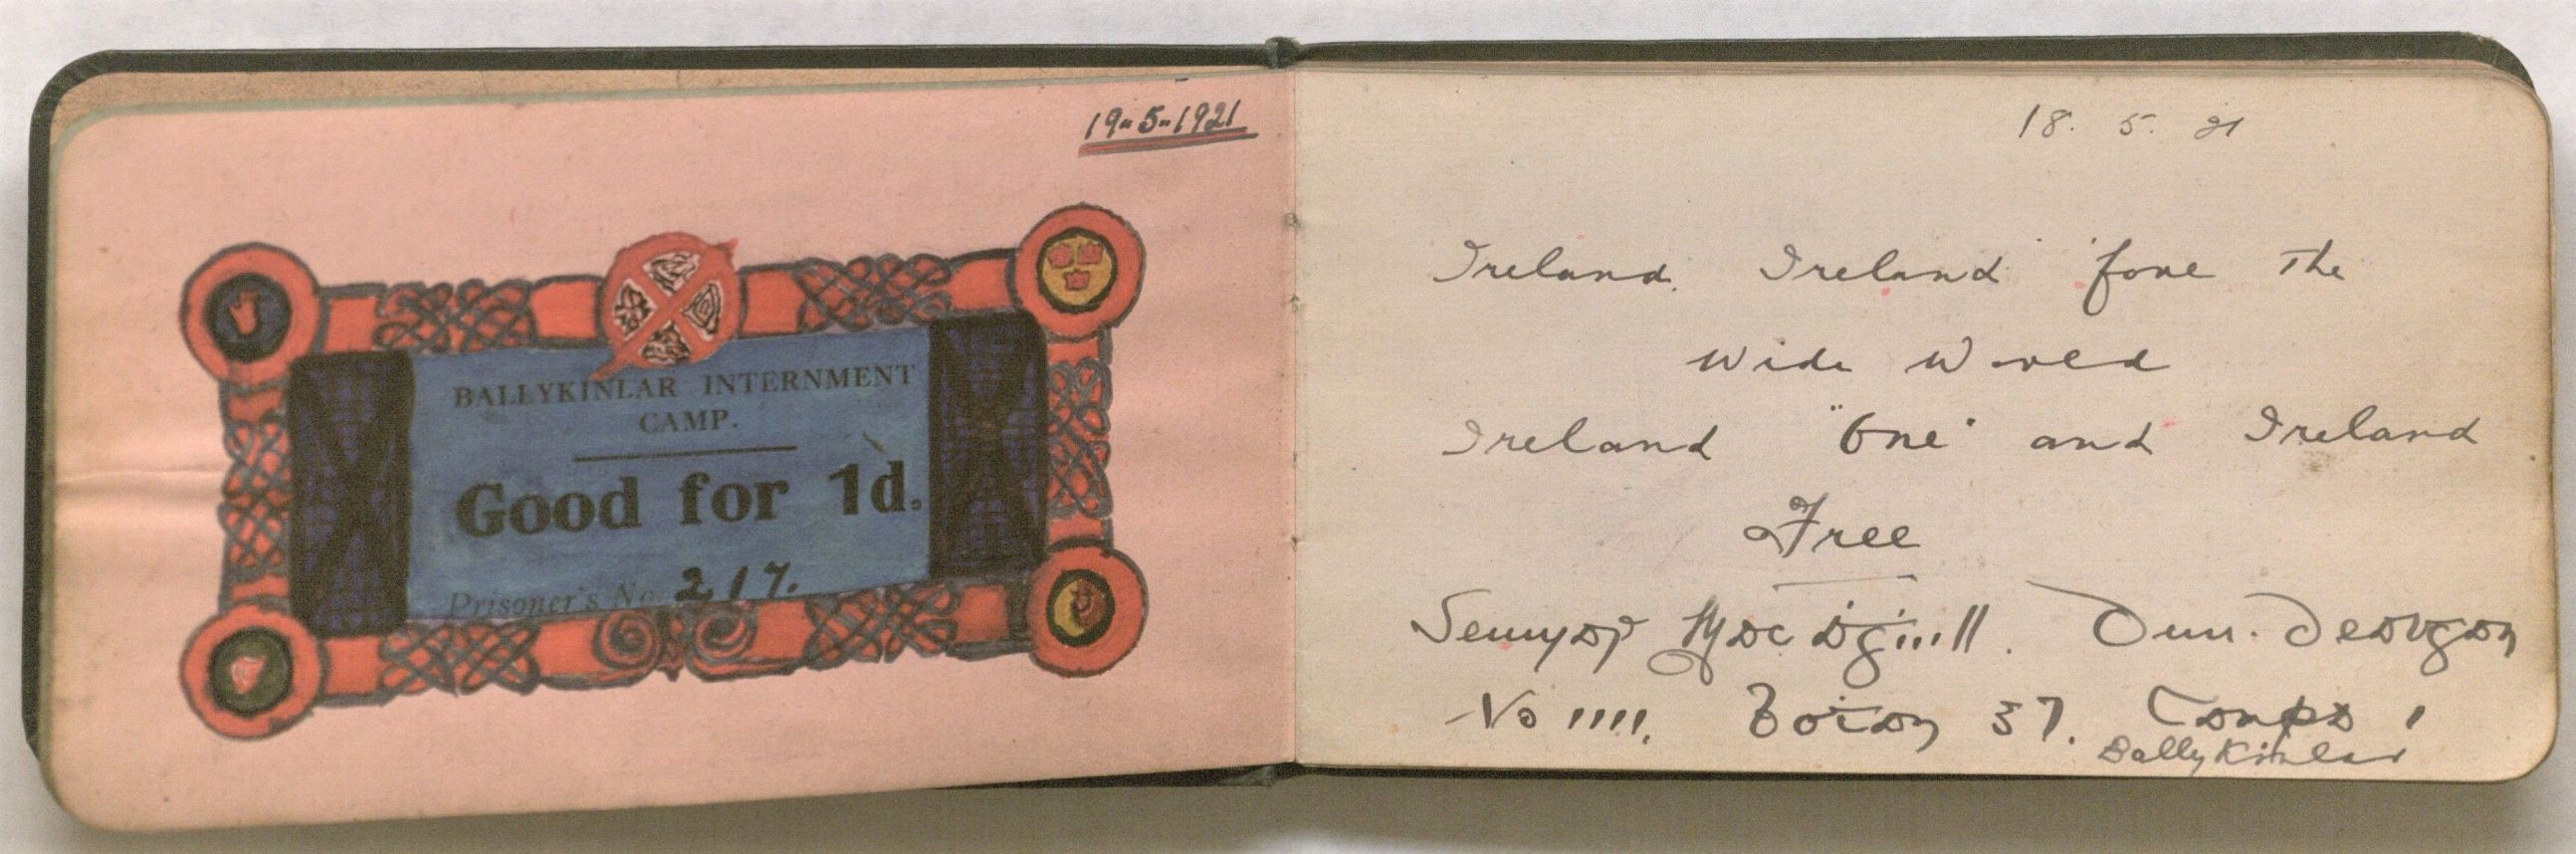 19-5-1921
BALLYKINLAR INTERNMENT
CAMP.
Good for 1d.
Prisoner's No. 217.
18. 5. 21
Ireland. Ireland 'fore the
Wide World
Ireland "One" and Ireland
Free
Seumas Mac Dun. Dealgan
No 1111. Boṫan 37. Campa 1
Ballykinlar